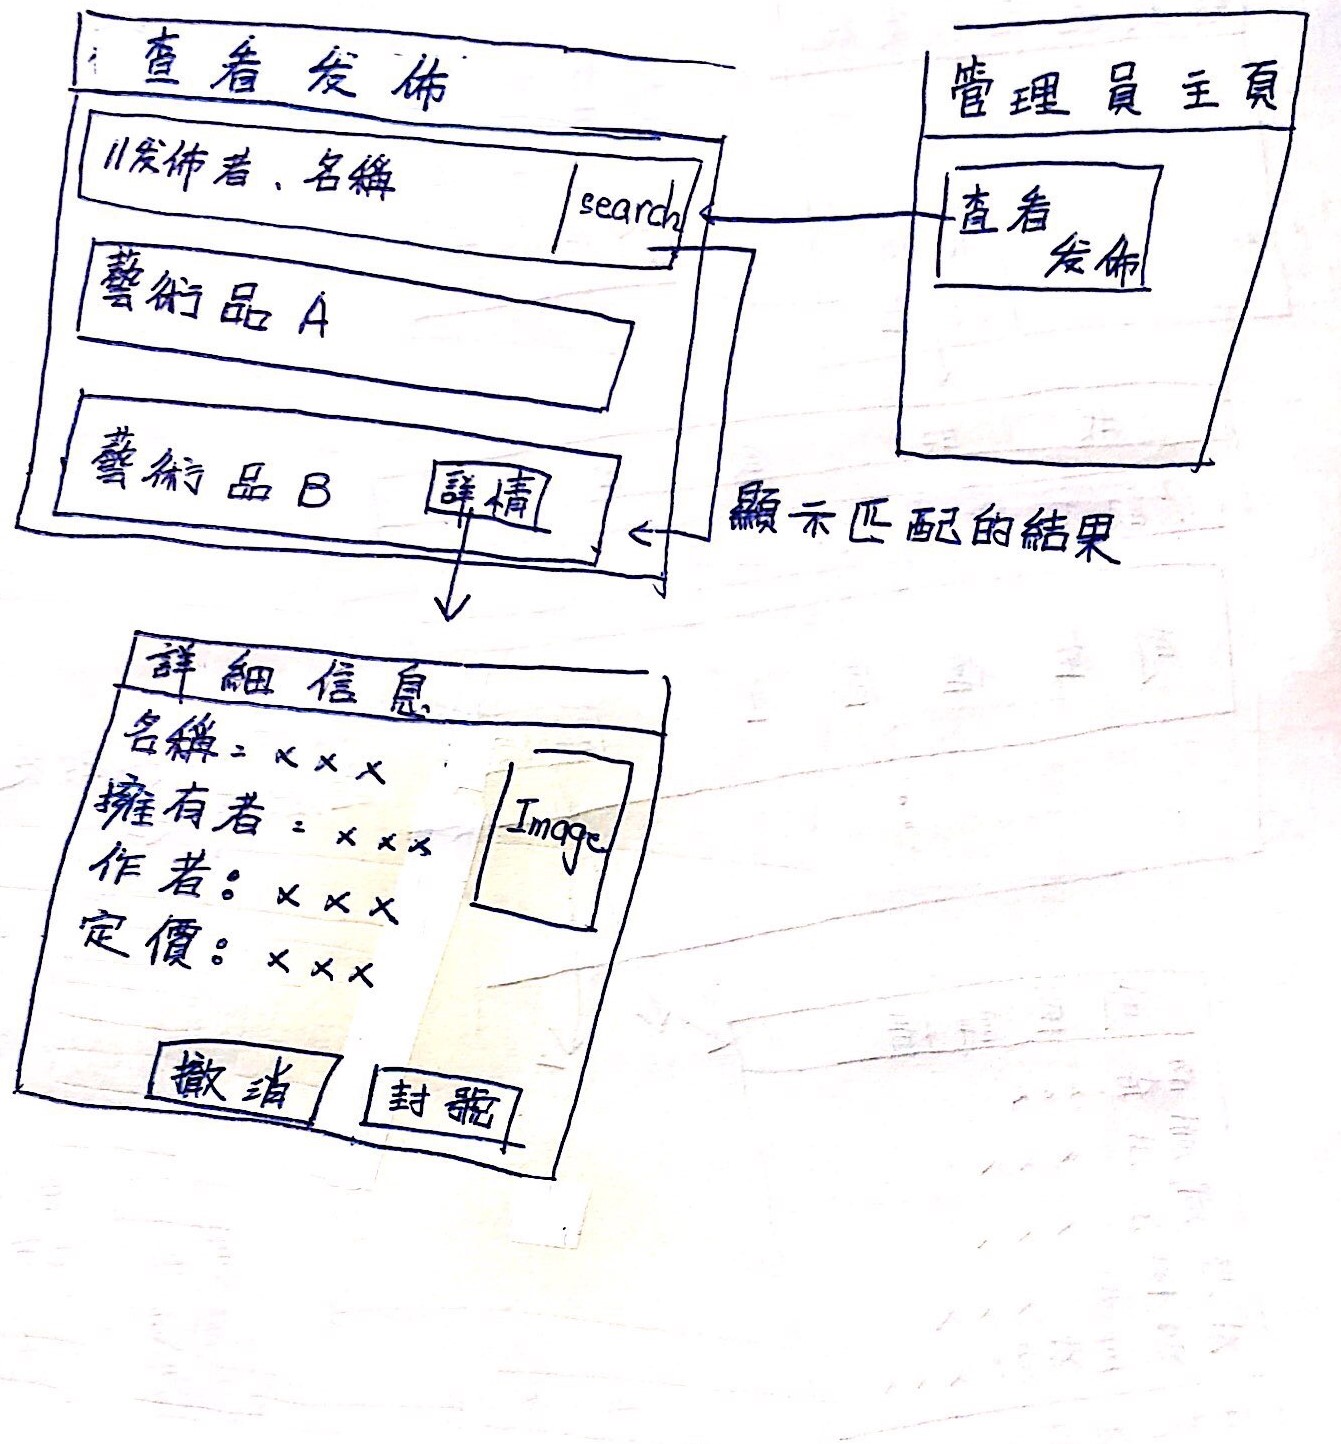 查看发佈
//发佈者、名稱
search
藝術品A
藝術品B
詳情
管理員主頁
查看
发佈
顯示匹配的結果
詳細信息
名稱：×××
擁有者：×××
作者：×××
定價：×××
Image
撤消
封號